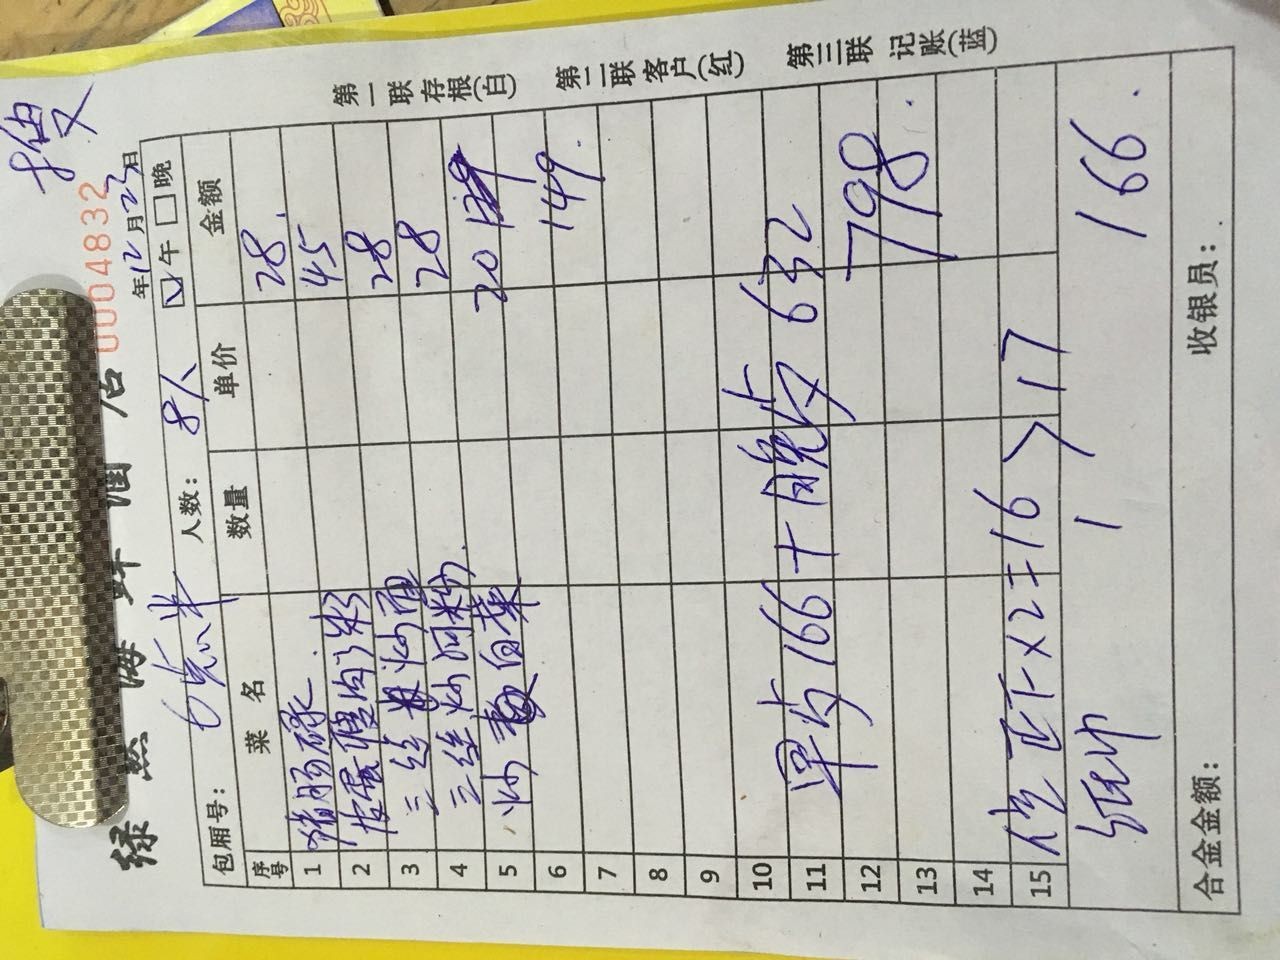 绿 海鲜酒店
0004832
包厢号： 人数：8人 年12月23日 ☑午 □晚
序号 菜名 数量 单价 金额
1 28.
2 皮蛋 45
3 三丝炒面 28
4 三丝炒河粉. 28
5 炒 白菜 20
6 149.
7
8
9
10
11 早卡166+晚卡632
12 798.
13
14
15 ×2=16 > 17
纸巾 1 166.
合金金额： 收银员：
第一联存根(白) 第二联客户(红) 第三联记账(蓝)